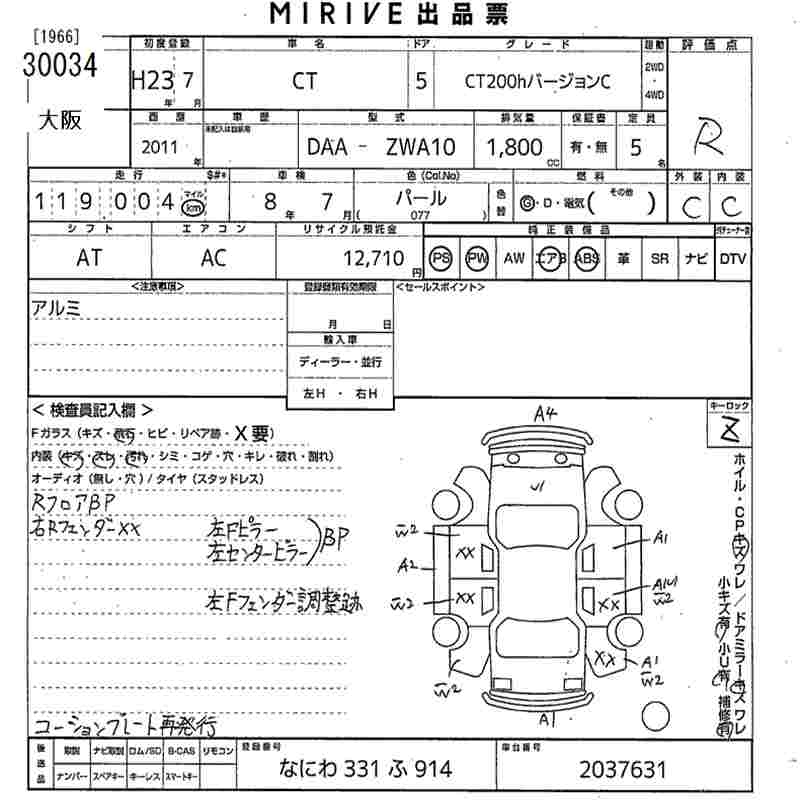 MIRIVE 出品票
[1966]
30034
大阪
初度登録 車名 ドア グレード 駆動 評価点
H23 7 CT 5 CT200hバージョンC 2WD ・ 4WD
年 月
R
西暦 車歴 型式 排気量 保証書 定員
未記入は自家用
2011年 DAA - ZWA10 1,800cc 有・無 5名
走行 $#* 車検 色(Col.No) 燃料 外装 内装
119004 マイル km 8年 7月 パール (077) 色替 G・D・電気(その他) C C
シフト エアコン リサイクル預託金 純正装備品
AT AC 12,710円 PS PW AW エアB ABS 革 SR ナビ DTV
<注意事項> 登録書類有効期限 <セールスポイント>
アルミ
月 日
輸入車
ディーラー・並行
左H ・ 右H
< 検査員記入欄 >
キーロック
Z
Fガラス (キズ・飛石・ヒビ・リペア跡・X要)
内装 (キズ・スレ・汚れ・シミ・コゲ・穴・キレ・破れ・割れ)
オーディオ (無し・穴) / タイヤ (スタッドレス)
RフロアBP
右RフェンダーXX 左Fピラー
左センターピラー BP
左Fフェンダー調整跡
コーションプレート再発行
A4
U1
W2 XX A1
A2
W2 XX XX A1U1
W2
XX A1
W2 W2
A1
ホイル・CPキズワレ/ドアミラーキズワレ
小キズ有 小U有 補修有
後送品 取説 ナビ取説 ロム/SD B-CAS リモコン 登録番号 車台番号
ナンバー スペアキー キーレス スマートキー なにわ 331 ふ 914 2037631